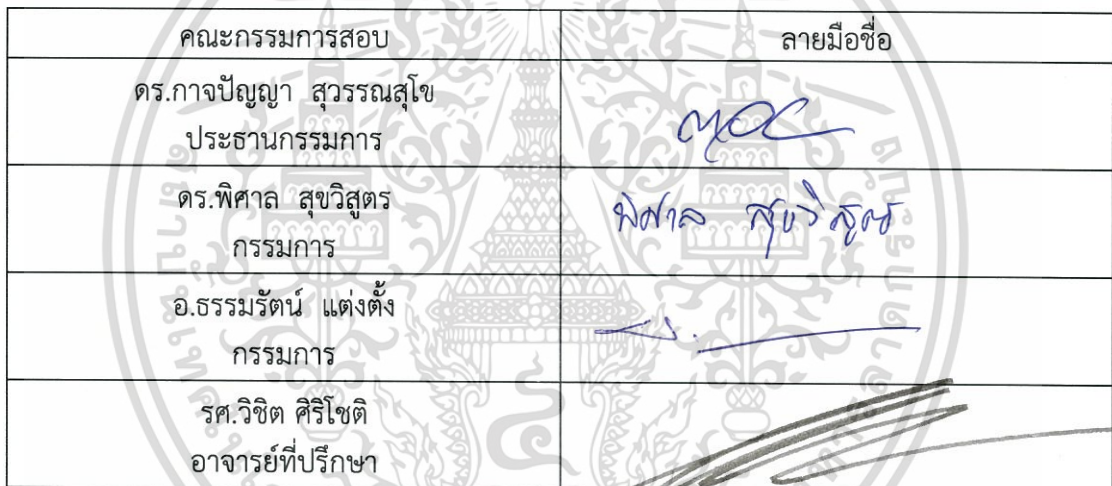 คณะกรรมการสอบ ลายมือชื่อ
ดร.กาจปัญญา สุวรรณสุโข
ประธานกรรมการ
ดร.พิศาล สุขวิสูตร
กรรมการ
พิศาล สุขวิสูตร
อ.ธรรมรัตน์ แต่งตั้ง
กรรมการ
รศ.วิชิต ศิริโชติ
อาจารย์ที่ปรึกษา